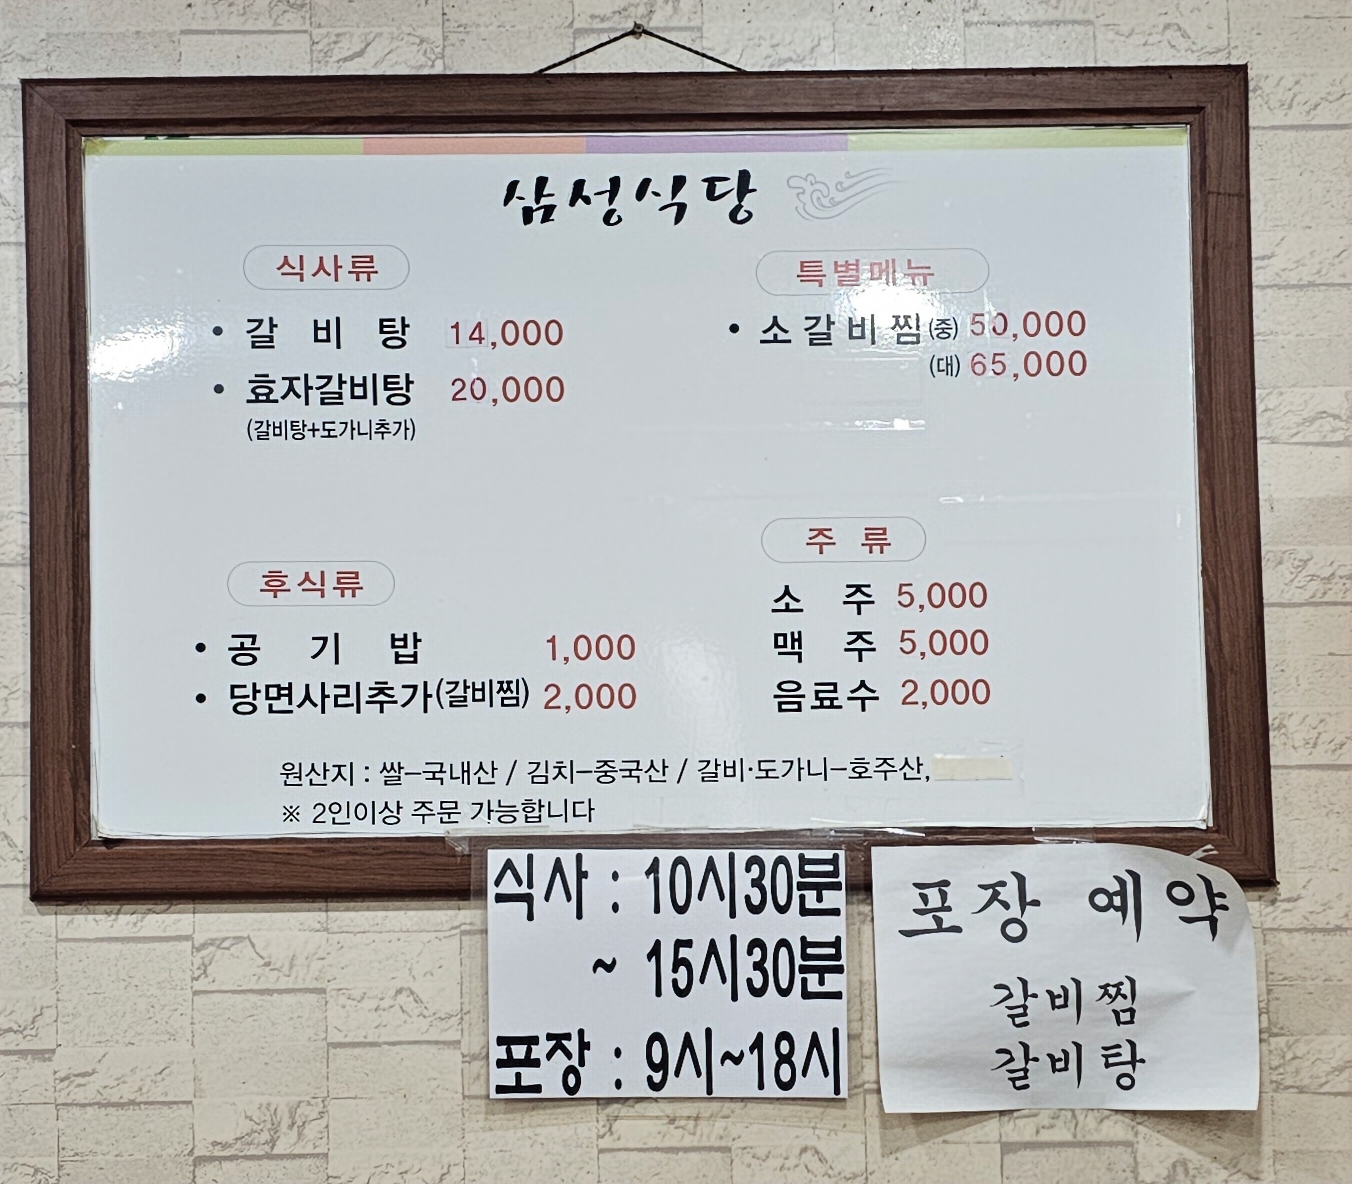 삼성식당
식사류
• 갈 비 탕 14,000
• 효자갈비탕 20,000
(갈비탕+도가니추가)
특별메뉴
• 소갈비찜(중) 50,000
(대) 65,000
후식류
• 공 기 밥 1,000
• 당면사리추가(갈비찜) 2,000
주 류
소 주 5,000
맥 주 5,000
음료수 2,000
원산지 : 쌀-국내산 / 김치-중국산 / 갈비·도가니-호주산,
※ 2인이상 주문 가능합니다
식사 : 10시30분
~ 15시30분
포장 : 9시~18시
포장 예약
갈비찜
갈비탕